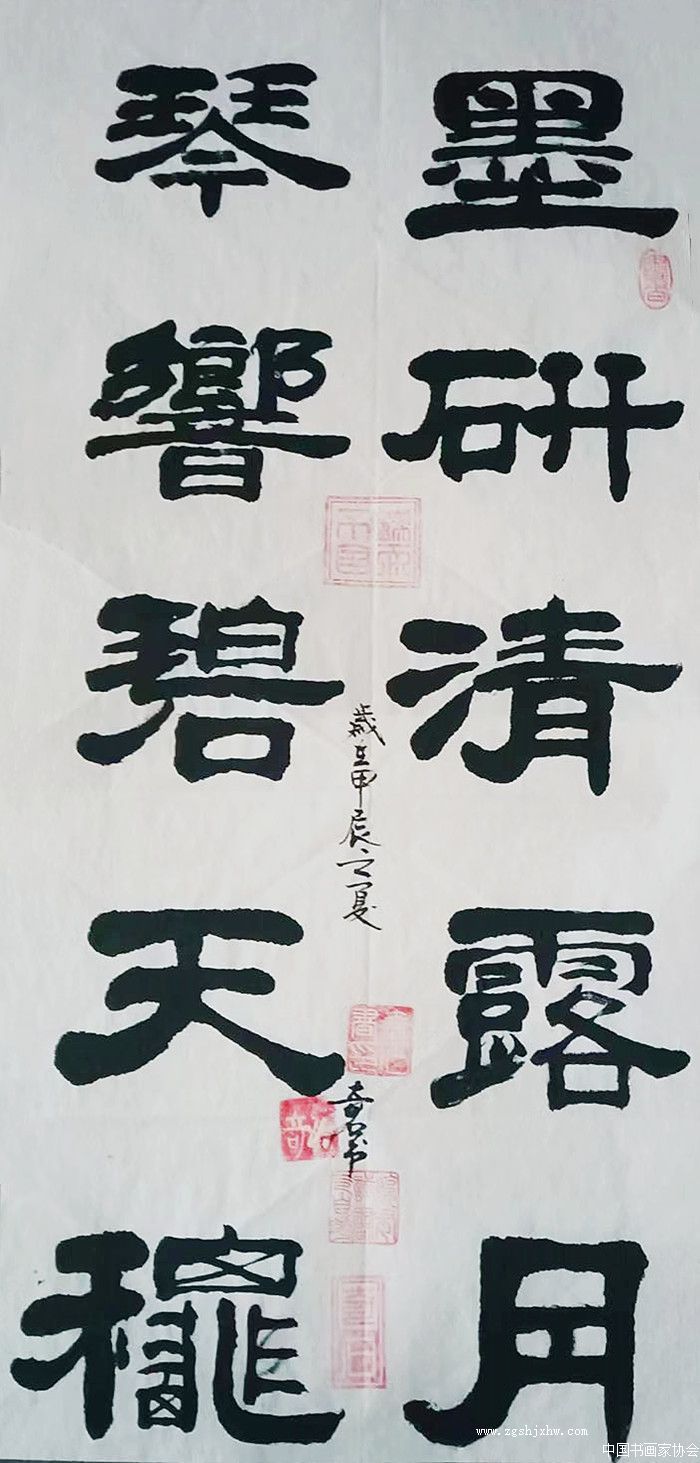 墨研清露月
琴響碧天龝
歲在甲辰之夏
奇石书
www.zgshjxhw.com
中国书画家协会